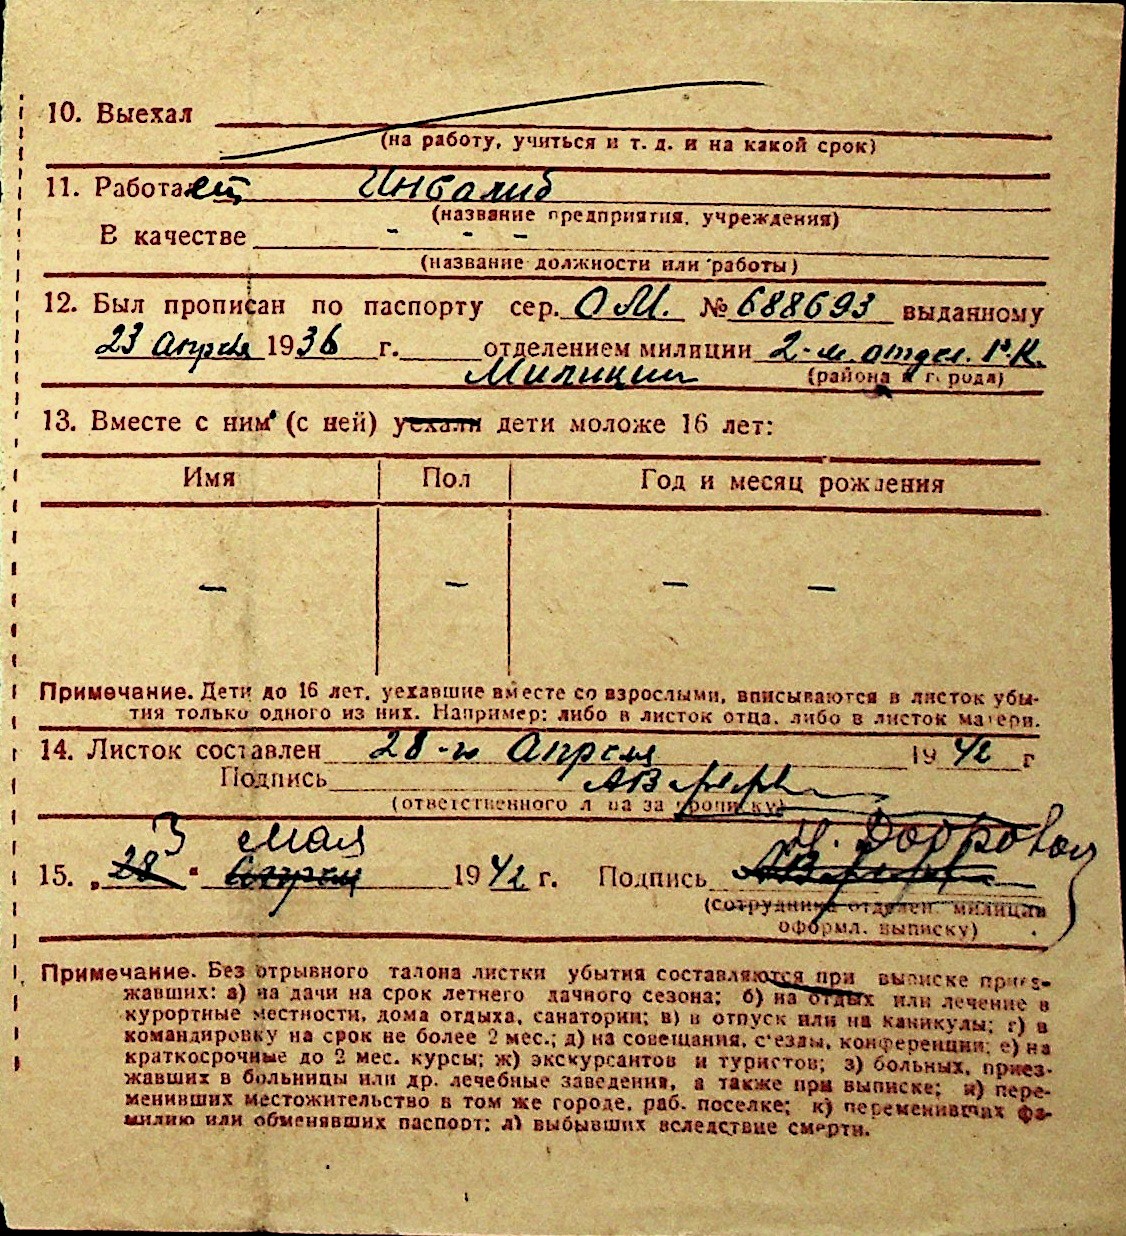 10. Выехал
(на работу, учиться и т. д. и на какой срок)
11. Работает Инвалид
(название предприятия, учреждения)
В качестве - - -
(название должности или работы)
12. Был прописан по паспорту сер. ОМ. № 688693 выданному
23 апреля 1936 г. отделением милиции 2-м отдел. Г.К.
Милиции (района и города)
13. Вместе с ним (с ней) уехали дети моложе 16 лет:
Имя Пол Год и месяц рождения
— — — —
Примечание. Дети до 16 лет, уехавшие вместе со взрослыми, вписываются в листок убы-
тия только одного из них. Например: либо в листок отца, либо в листок матери.
14. Листок составлен 28-го Апреля 1942 г
Подпись
(ответственного лица за прописку)
3 мая
15. „28" Апреля 1942 г. Подпись
(сотрудника отделен. милиции
оформл. выписку)
Примечание. Без отрывного талона листки убытия составляются при выписке приез-
жавших: а) на дачи на срок летнего дачного сезона; б) на отдых или лечение в
курортные местности, дома отдыха, санатории; в) в отпуск или на каникулы; г) в
командировку на срок не более 2 мес.; д) на совещания, с'езды, конференции; е) на
краткосрочные до 2 мес. курсы; ж) экскурсантов и туристов; з) больных, приез-
жавших в больницы или др. лечебные заведения, а также при выписке; и) пере-
менивших местожительство в том же городе, раб. поселке; к) переменивших фа-
милию или обменявших паспорт; л) выбывших вследствие смерти.